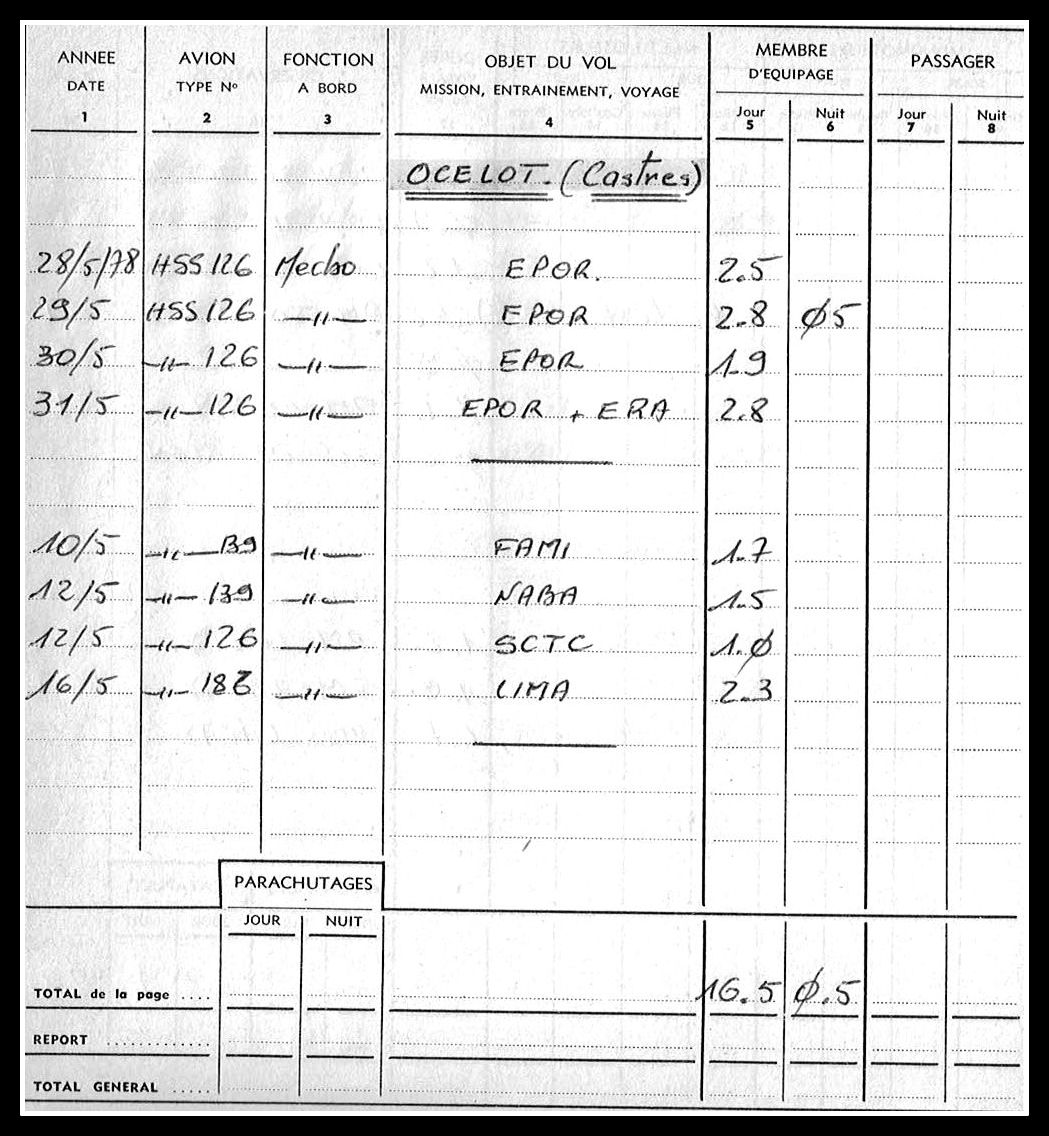 ANNEE AVION FONCTION OBJET DU VOL MEMBRE PASSAGER
DATE TYPE No A BORD MISSION, ENTRAINEMENT, VOYAGE D'EQUIPAGE
Jour Nuit Jour Nuit
1 2 3 4 5 6 7 8
OCELOT. (Castres)
28/5/78 HSS 126 Mecbo EPOR. 2.5
29/5 HSS 126 —〃— EPOR 2.8 Ø5
30/5 —〃— 126 —〃— EPOR 1.9
31/5 —〃— 126 —〃— EPOR + ERA 2.8
10/5 —〃— 139 —〃— FAMI 1.7
12/5 —〃— 139 —〃— NABA 1.5
12/5 —〃— 126 —〃— SCTC 1.Ø
16/5 —〃— —〃— LIMA 2.3
PARACHUTAGES
JOUR NUIT
TOTAL de la page .... 16.5 Ø.5
REPORT .............
TOTAL GENERAL ......